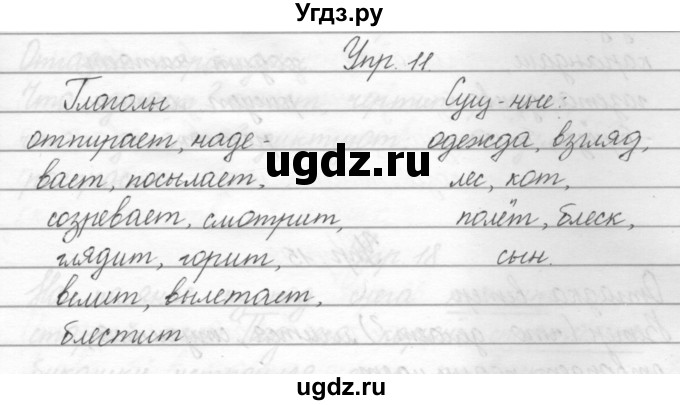 Угдз.ру
Упр. 11
Глаголы Сущ-ные:
отпирает, наде- одежда, взгляд,
ugdz.ru
вает, посылает, лес, кот,
созревает, смотрит, полёт, блеск,
глядит, горит, сын.
велит, вылетает,
блестит
ugdz.ru